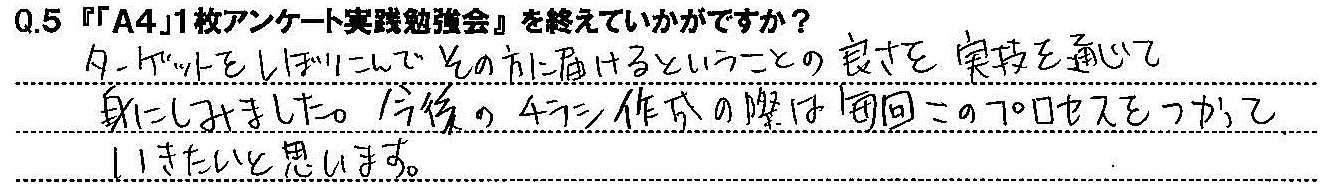 Q.5 『「A4」1枚アンケート実践勉強会』を終えていかがですか？
ターゲットをしぼりこんでその方に届けるということの良さを実技を通じて
身にしみました。今後のチラシ作成の際は毎回このプロセスをつかって
いきたいと思います。